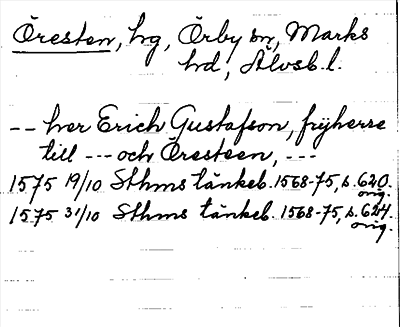 Öresten, hg, Örby sn, Marks
hd, Älvsb. l.
-- her Erich Gustafson, frijherre
till --- och Öresteen, ---
1575 19/10 Sthms tänkeb. 1568-75, s. 620.
orig.
1575 31/10 Sthms tänkeb. 1568-75, s. 624.
orig.